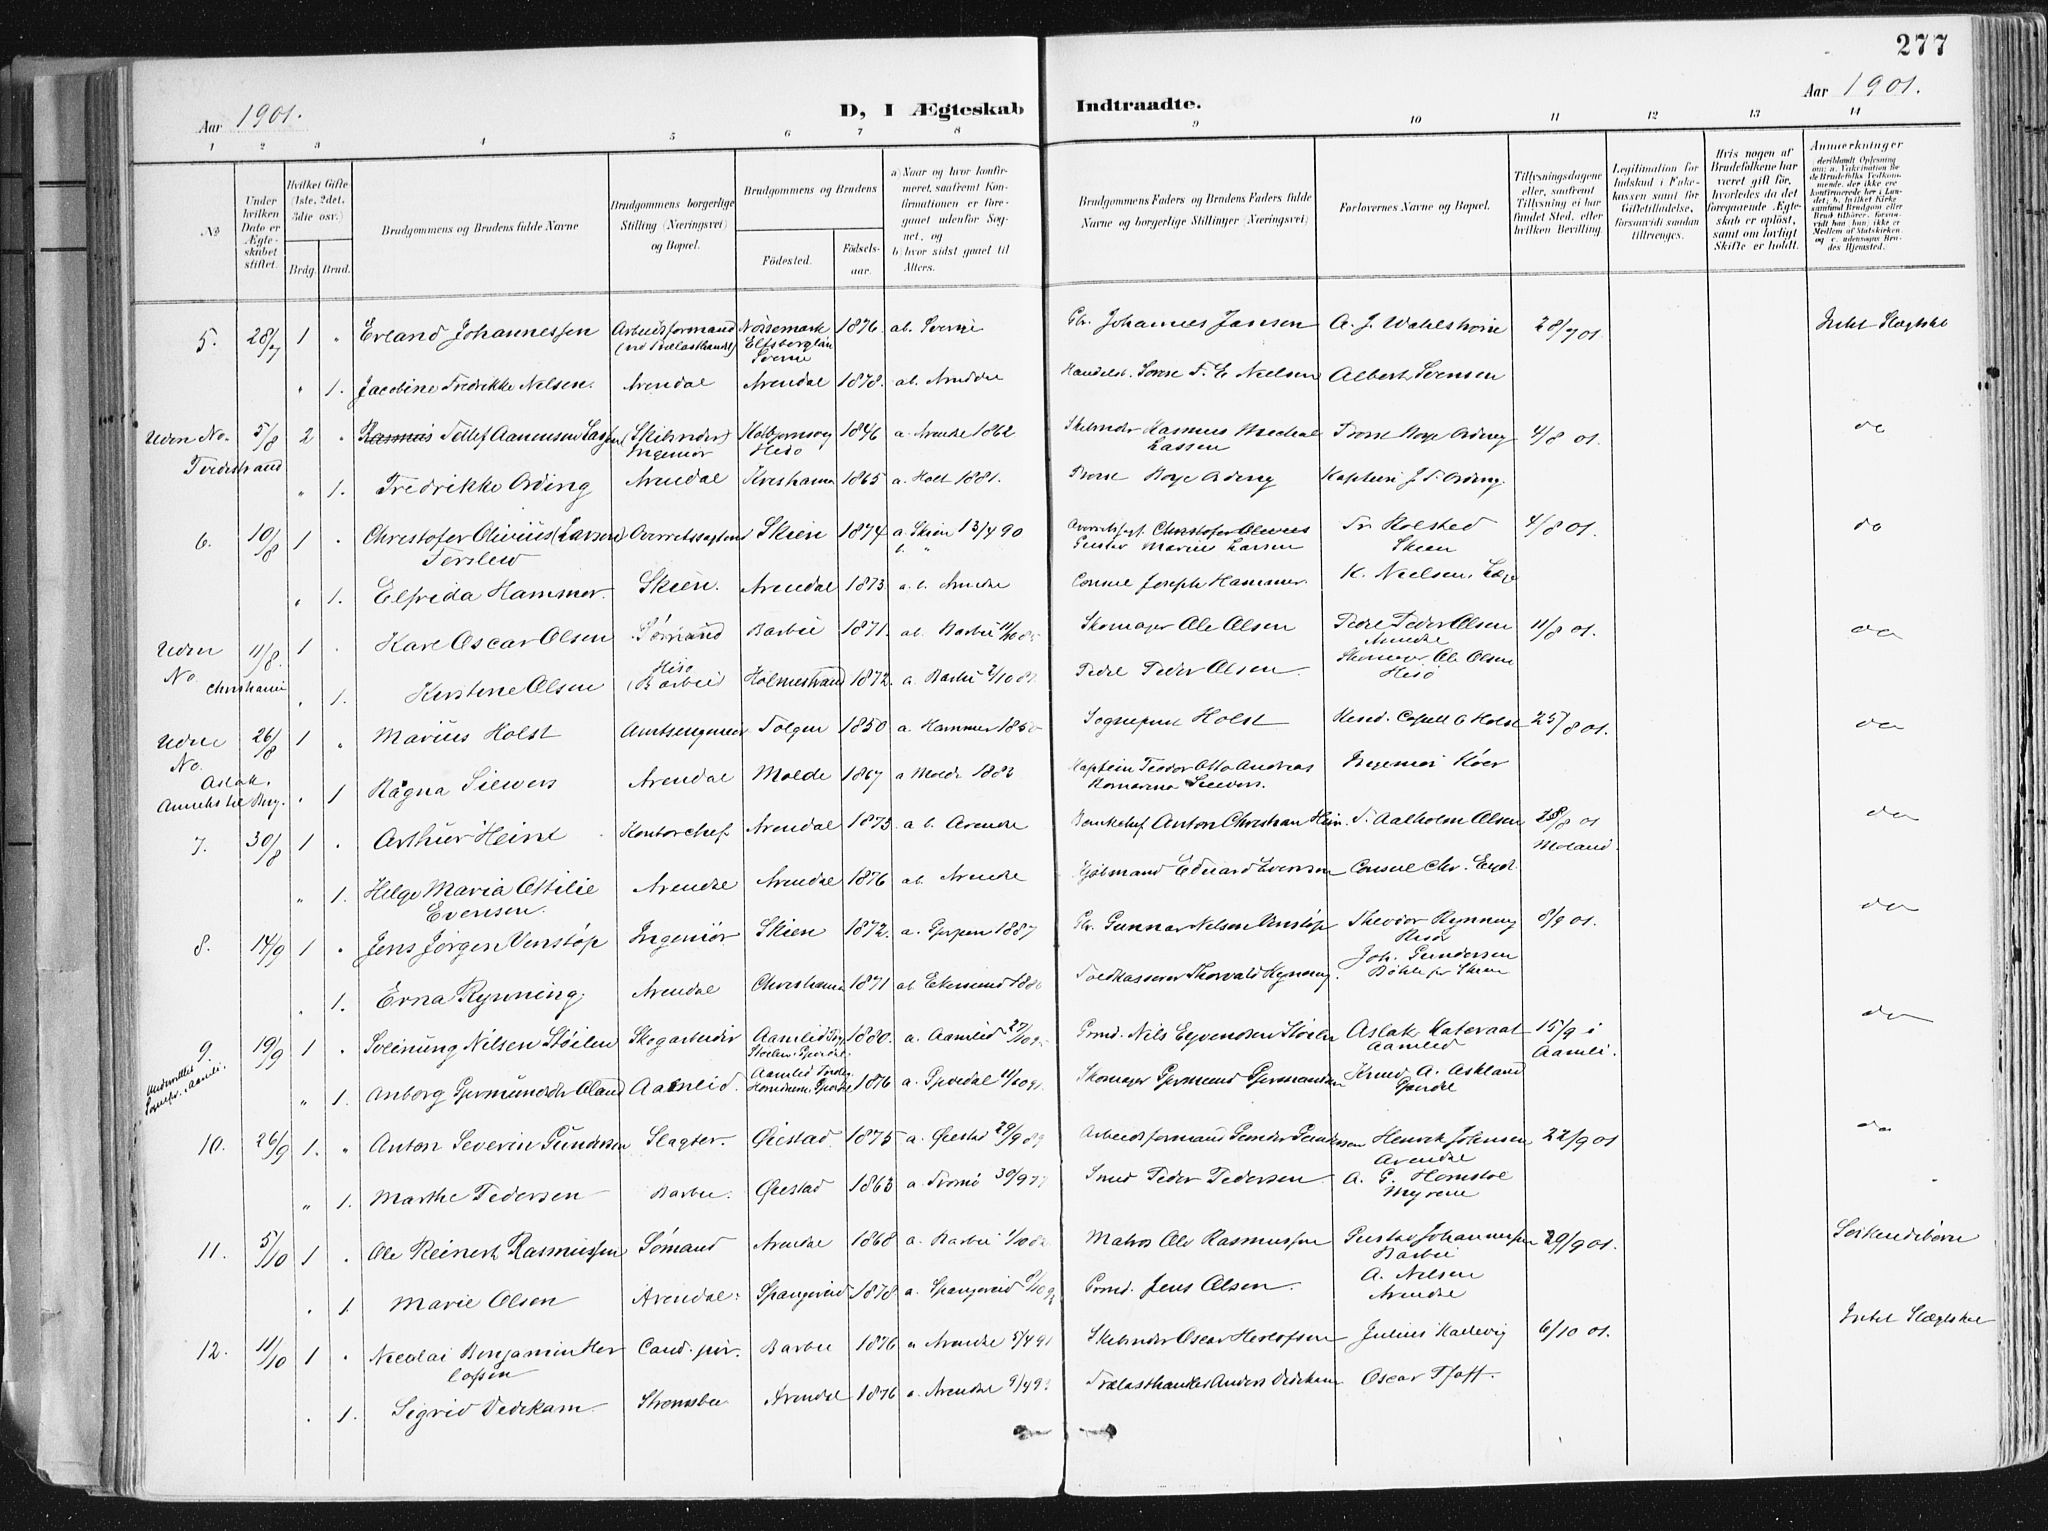 277
Aar 1901.
D, I Ægteskab Indtraadte.
Aar 1901.
1 2 3 4 5 6 7 8 9 10 11 12 13 14
No
Under hvilken Dato er Ægteskabet stiftet.
Hvilket Gifte (1ste, 2det, 3die osv.)
Brdg. Brud.
Brudgommens og Brudens fulde Navne
Brudgommens borgerlige Stilling (Næringsvei) og Bopæl.
Brudgommens og Brudens
Fødested.
Fødselsaar.
a) Naar og hvor konfirmeret, saafremt Konfirmationen er foregaaet udenfor Sognet, og
b) hvor sidst gaaet til Alters.
Brudgommens Faders og Brudens Faders fulde Navne og borgerlige Stillinger (Næringsvei)
Forlovernes Navne og Bopæl.
Tillysningsdagene eller, saafremt Tillysning ei har fundet Sted, efter hvilken Bevilling.
Legitimation for Indskud i Fakekassen samt for Giftetilladelse, forsaavidt saadan tiltrænges.
Hvis nogen af Brudefolkene har været gift før, hvorledes da det foregaaende Ægteskab er opløst, samt om lovligt Skifte er holdt.
Anmerkninger
5. 28/7 1 " Erland Johannessen Arbeidsformand Nössemark 1876 ab. Sverige Gbr. Johannes Jansen A. J. Wahlstrøm 28/7 01. Intet Slægtskab
Elfsborglän
Sverige
" 1. Jacobine Fredrikke Nielsen. Arendal Arendal 1878. ab. Arendal T. E. Nielsen Albert Svensen
Uden No. 5/8 2 " Rasmus Detlef Aanensen Lassen (Skibreder) Kolbjørnsvig 1846 a. Arendal 1862 Skibreder Rasmus Lassen 4/8 01. do
Tvedestrand Ingeniør Hisø
" 1. Fredrikke Ording Arendal Kristiania 1865 a. Holt 1881. Boye Ording Kaptein J. F. Ording.
6. 10/8 1 " Christofer Olivius (Larsen) Overretssagfører Skien 1874 a. Skien 13/4 90 Christofer Olivius Fr. Rolsted 4/8 01. do
Terslew b. " Gustav Marius Larsen Skien
" 1. Elfrida Hammer. Skien. Arendal 1873. a. b. Arendal Consul Joseph Hammer. K. Nielsen,
Uden No. 11/8. 1 " Karl Oscar Olsen Sømand Barbu 1871. ab. Barbu Skomager Ole Olsen Peder Olsen 11/8 01. do
Christiania Hisø Arendal
" 1. Kirstine Olsen (Barbu) Holmestrand 1872. a. Barbu Peder Olsen. Skomager Ole Olsen
Hisø
Uden No. 26/8 1 " Marius Holst Amtsingeniør Tolgen 1850 a. Hammer Sogneprest Holst Resid. Capell. Holst 25/8 01. do
Aslak,
" 1 Ragna Siewers Arendal Molde 1867 a Molde 1883 Kaptein Otto Andreas Ingeniør
Siewers.
7. 30/8 1 " Arthur Heine Kontorchef Arendal 1873 ab. Arendal Bankchef Anton Christian Hein. T. Aalholm Olsen 28/8 01 do
Moland.
" 1. Helga Maria Ottilie Arendal Arendal 1876 ab. Arendal Kjøbmand Eduard Evensen Consul Chr.
Evensen.
8. 14/9 1 " Jens Jørgen Venstøp Ingeniør Skien 1872. a. Gjerpen 1887 Gbr. Gunnar Nielsen Venstøp Theodor Rynning 8/9 01. do
Risør
" 1. Erna Rynning. Arendal Christiania 1871 ab Ekersund Toldkasserer Thorvald Rynning. Joh. Gundersen
Bøhle pr Skien
9. 19/9 1 " Sveinung Nilsen Støilen Skogarbeider Aamlid 1880. a. Aamlid 27/10 95 Grmd. Nils Eyvindsen Støilen Aslak Kateraas 15/9 i do
Aamlid Aamli.
" 1. Anborg Gjermundsdtr Øland Aamlid. 1876 a. Gjøvdal 11/10 91. Skomager Gjermund Gjermundsen Knud A. Askland
Gjøvdal
10. 26/9 1. " Anton Severin Gundersen Slagter. Øiestad 1875 a. Øiestad 29/9 89 Arbeidsformand Gunder Gundersen Henrik Johnsen 22/9 01 do
Arendal
" 1. Marthe Pedersen Barbu. Øiestad 1863 a. Tromø 30/9 77 Smed Peder Pedersen A. G. Hornstol
Myrene
11. 5/10 1 " Ole Reinert Rasmussen Sømand Arendal 1868 a. Barbu Matros Ole Rasmussen Gustav Johannessen 29/9 01. Søskendebørn
Barbu
" 1. Marie Olsen Arendal. Spangereid 1878 a. Spangereid Grmd. Jens Olsen. A. Nilsen
Arendal
12. 11/10 1 " Nicolai Benjamin Her Cand. jur. Barbu 1876 a Arendal 5/4 91 Skibreder Oscar Herlofsen Julius Kallevig 6/10 01. Intet Slægtskab
lofsen
" 1. Sigrid Vedekam. Strømsbu Arendal 1876 a. Arendal Trælasthandler Anders Vedekam Oscar Pfaff.